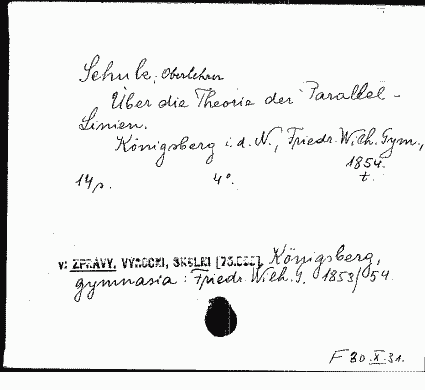 Schulz, Oberlehrer
Über die Theorie der Parallel-
Linien.
Königsberg i. d. N., Friedr. Wilh. Gym.,
1854.
14 p. 4°. t.
v: ZPRÁVY, VÝROČNÍ, ŠKOLNÍ Königsberg,
gymnasia: Friedr. Wilh. G. 1853/54.
F 30.X.31.